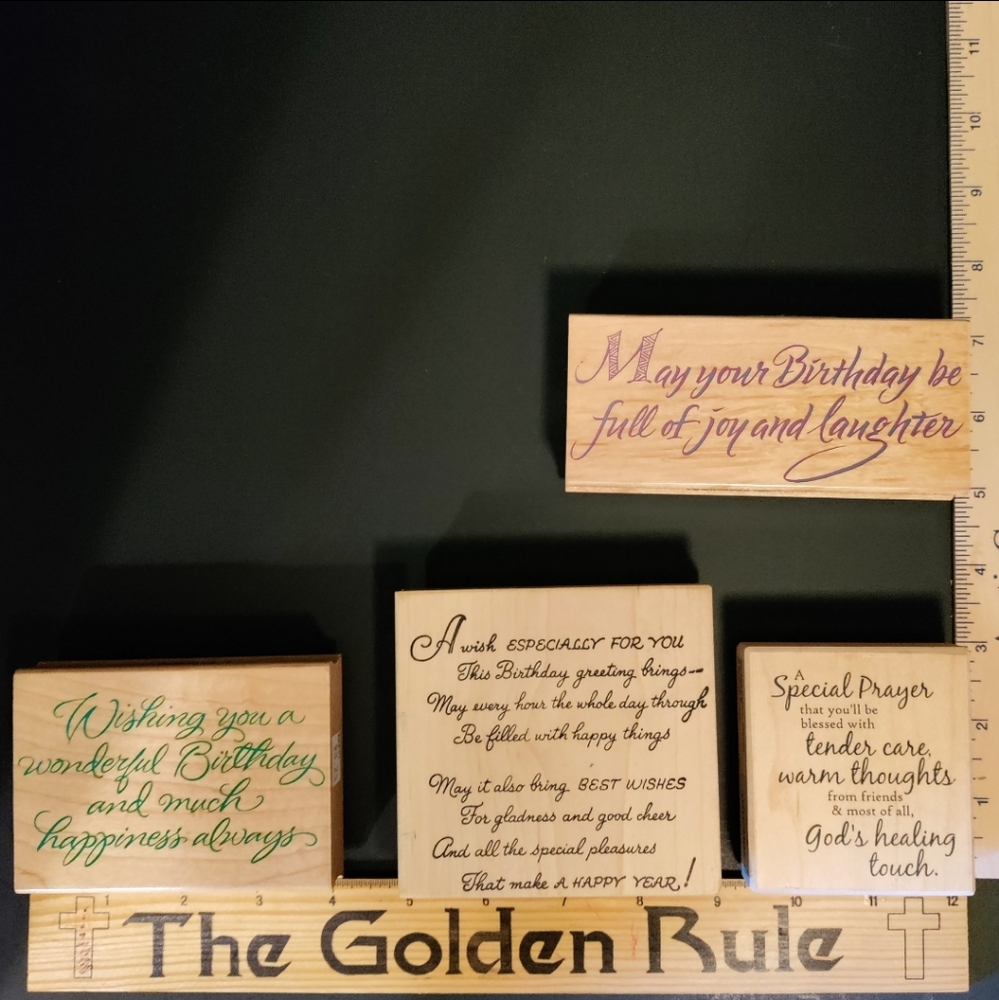 May your Birthday be
full of joy and laughter
Wishing you a
wonderful Birthday
and much
happiness always
A wish ESPECIALLY FOR YOU
This Birthday greeting brings--
May every hour the whole day through
Be filled with happy things
May it also bring BEST WISHES
For gladness and good cheer
And all the special pleasures
That make A HAPPY YEAR!
A
Special Prayer
that you'll be
blessed with
tender care,
warm thoughts
from friends
& most of all,
God's healing
touch.
1 2 3 4 5 6 7 8 9 10 11 12
The Golden Rule
11
10
9
8
7
6
5
4
3
2
1